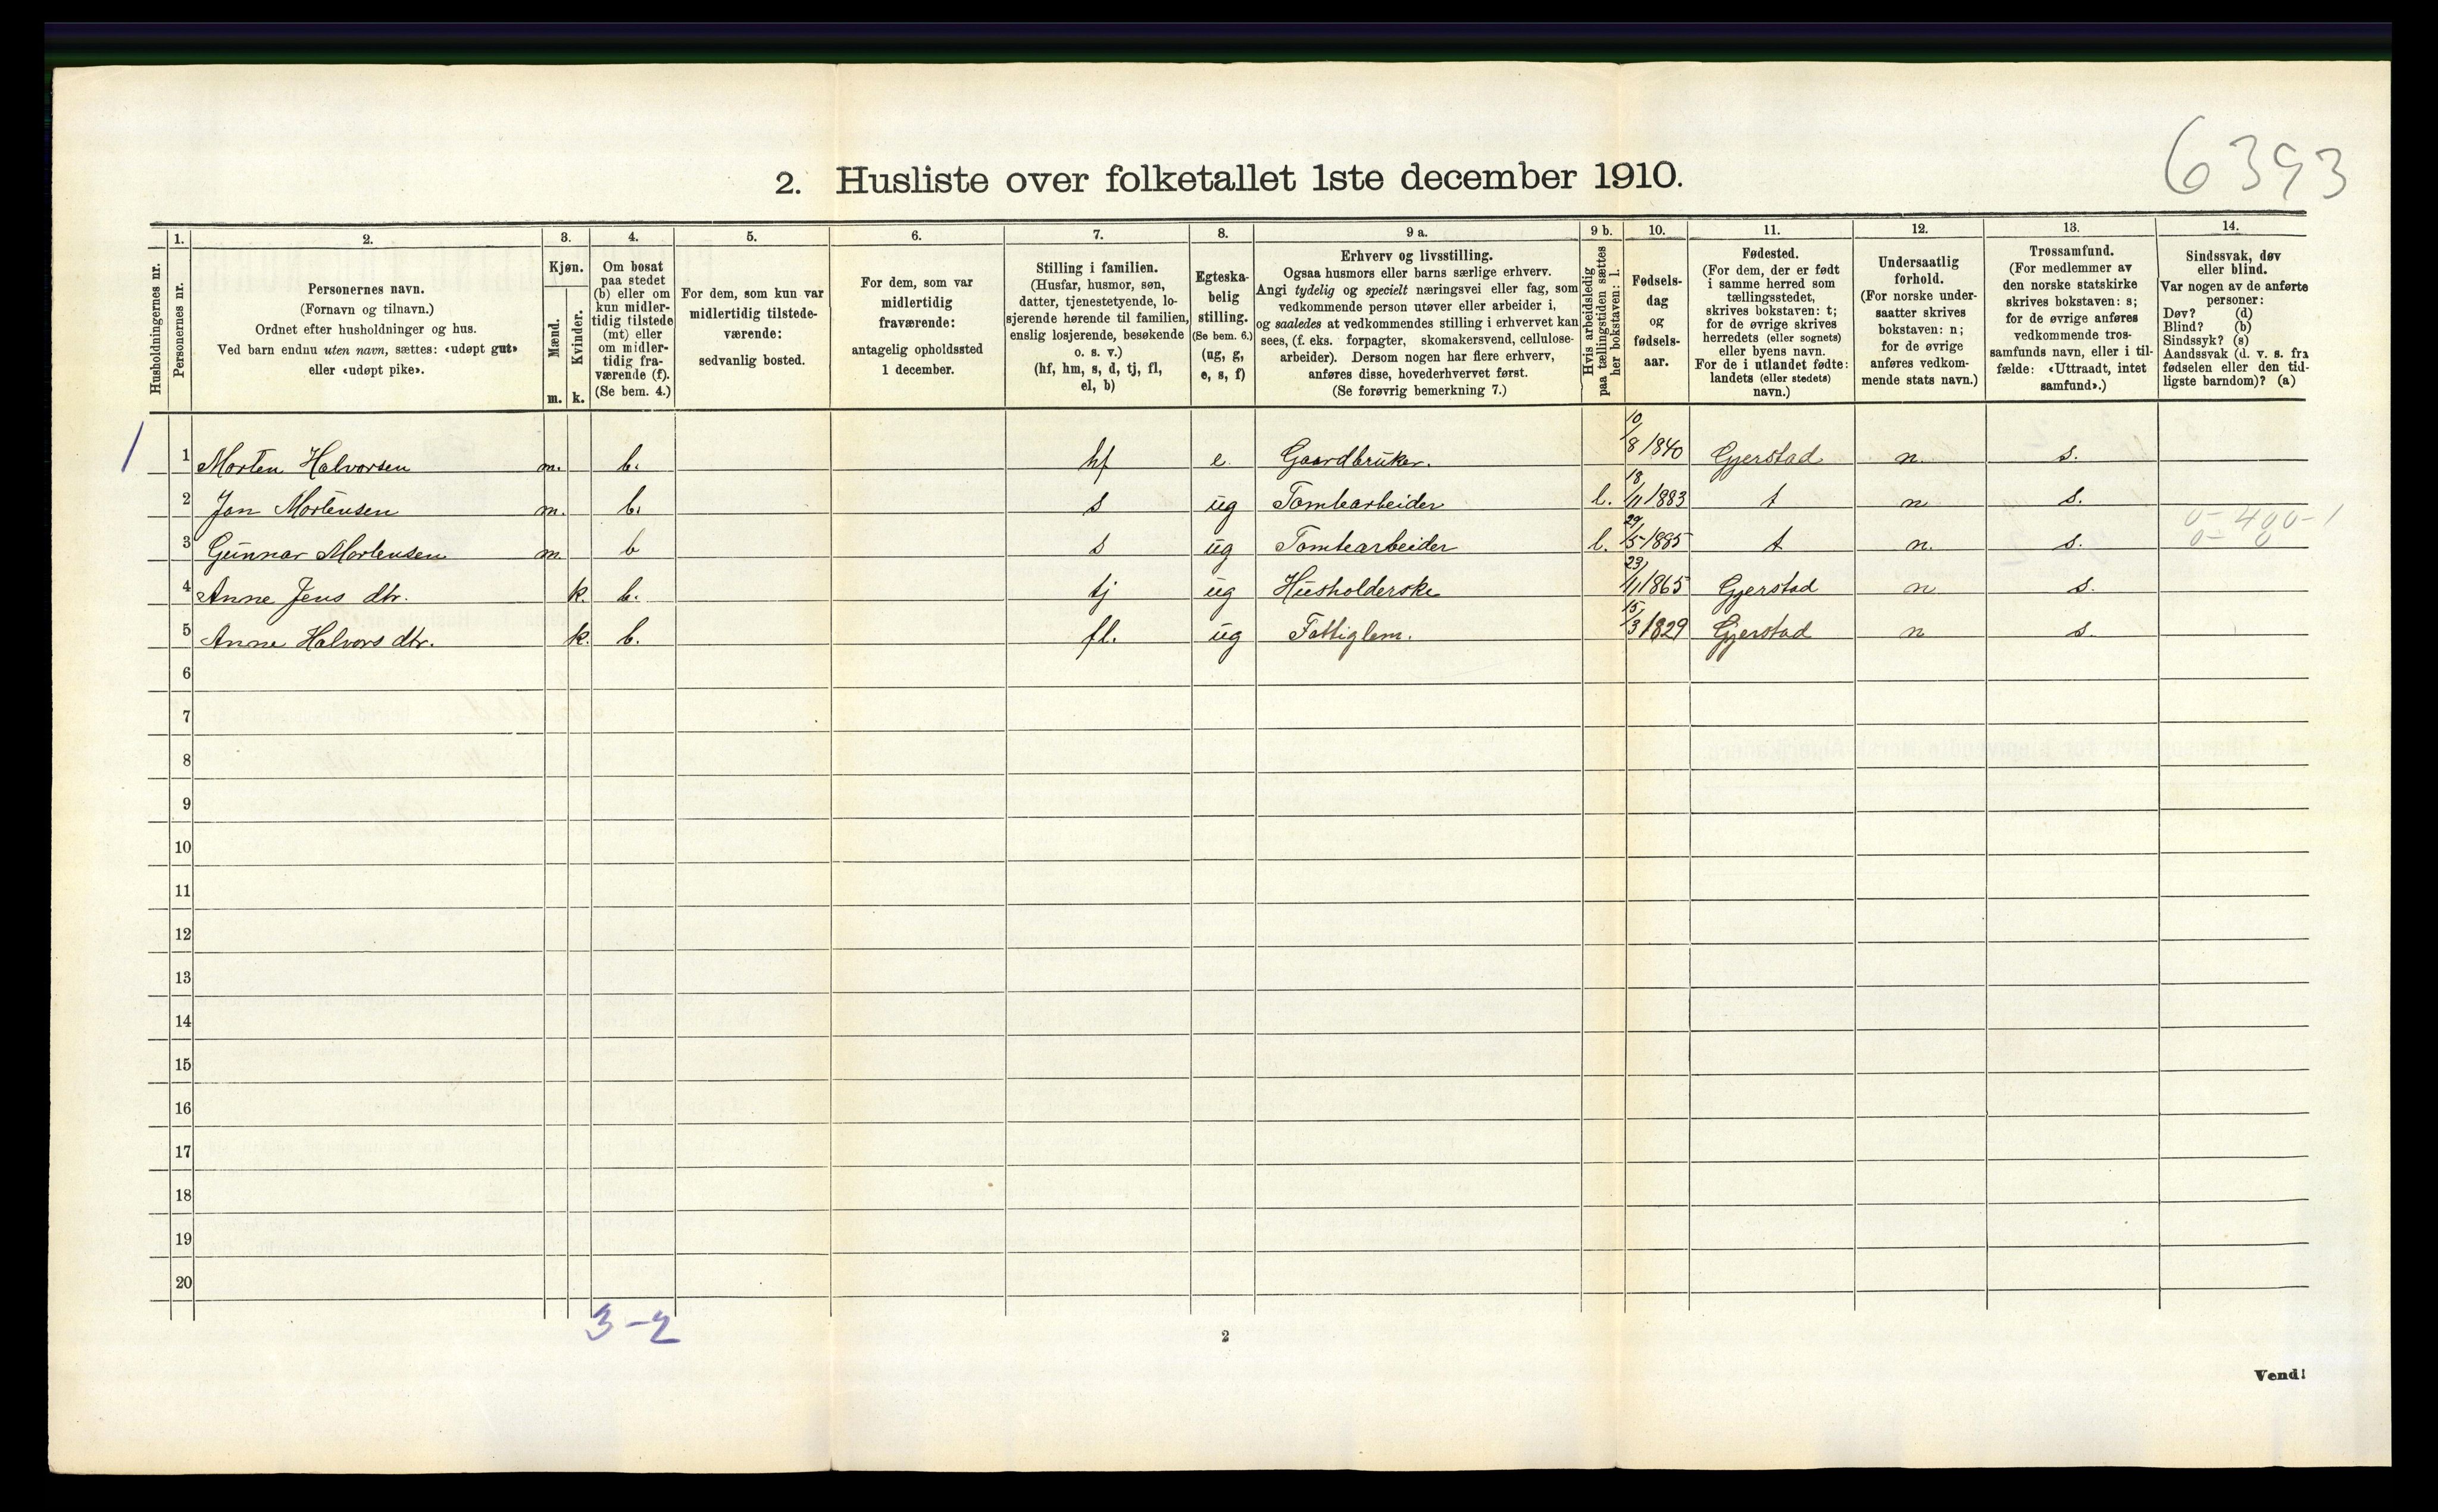 6393
2. Husliste over folketallet 1ste december 1910.
Husholdningernes nr.
1.
Personernes nr.
2.
Personernes navn.
(Fornavn og tilnavn.)
Ordnet efter husholdninger og hus.
Ved barn endnu uten navn, sættes: «udøpt gut»
eller «udøpt pike».
3.
Kjøn.
Mænd.
Kvinder.
m.
k.
4.
Om bosat
paa stedet
(b) eller om
kun midler-
tidig tilstede
(mt) eller
om midler-
tidig fra-
værende (f).
(Se bem. 4.)
5.
For dem, som kun var
midlertidig tilstede-
værende:
sedvanlig bosted.
6.
For dem, som var
midlertidig
fraværende:
antagelig opholdssted
1 december.
7.
Stilling i familien.
(Husfar, husmor, søn,
datter, tjenestetyende, lo-
sjerende hørende til familien,
enslig losjerende, besøkende
o. s. v.)
(hf, hm, s, d, tj, fl,
el, b)
8.
Egteska-
belig
stilling.
(Se bem. 6.)
(ug, g,
e, s, f)
9 a.
Erhverv og livsstilling.
Ogsaa husmors eller barns særlige erhverv.
Angi tydelig og specielt næringsvei eller fag, som
vedkommende person utøver eller arbeider i,
og saaledes at vedkommendes stilling i erhvervet kan
sees, (f. eks. forpagter, skomakersvend, cellulose-
arbeider). Dersom nogen har flere erhverv,
anføres disse, hovederhvervet først.
(Se forøvrig bemerkning 7.)
9 b.
Hvis arbeidsledig
paa tællingstiden sættes
her bokstaven: l.
10.
Fødsels-
dag
og
fødsels-
aar.
11.
Fødested.
(For dem, der er født
i samme herred som
tællingsstedet,
skrives bokstaven: t;
for de øvrige skrives
herredets (eller sognets)
eller byens navn.
For de i utlandet fødte:
landets (eller stedets)
navn.)
12.
Undersaatlig
forhold.
(For norske under-
saatter skrives
bokstaven: n;
for de øvrige
anføres vedkom-
mende stats navn.)
13.
Trossamfund.
(For medlemmer av
den norske statskirke
skrives bokstaven: s;
for de øvrige anføres
vedkommende tros-
samfunds navn, eller i til-
fælde: «Uttraadt, intet
samfund».)
14.
Sindssvak, døv
eller blind.
Var nogen av de anførte
personer:
Døv? (d)
Blind? (b)
Sindssyk? (s)
Aandssvak (d. v. s. fra
fødselen eller den tid-
ligste barndom)? (a)
1 1 Morten Halvorsen m. b. hf e. Gaardbruker. 10/8 1840 Gjerstad n. s.
2 Jon Mortensen m. b. s ug Tomtearbeider l. 18/11 1883 t n s.
3 Gunnar Mortensen m b s ug Tomtearbeider l. 29/5 1885 t n. s.
0-400-1
4 Anne Jens dtr. k. b. tj ug Husholderske 23/11 1865 Gjerstad n s.
5 Anne Halvors dtr. k. b. fl. ug Fattiglem. 15/3 1829 Gjerstad n s.
6
7
8
9
10
11
12
13
14
15
16
17
18
19
20
3-2
2
Vend!